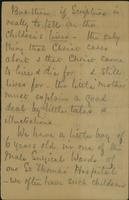 But then if Scripture is
really to tell on the
Children's lives — the only
thing that Christ cares
about & that Christ came
to live & die for & still
lives for — the little mother
must explain a good
deal by little tales &
illustrations
We have a little boy of
6 years old in one of the
Male Surgical Wards of
our St Thomas' Hospital
— we often have such children